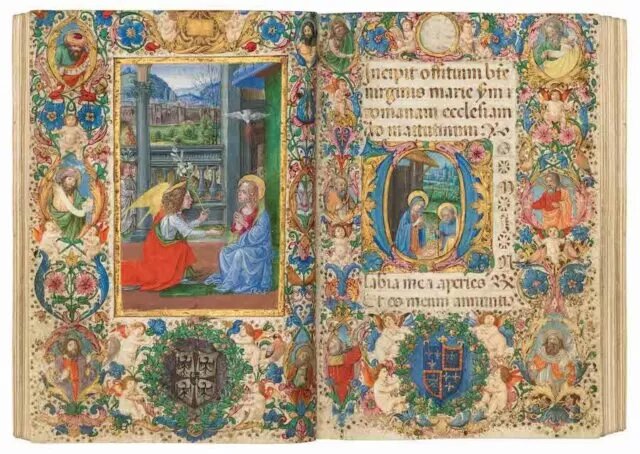 Incipit offitium bte
uirginis marie
romanam ecclesiam
matutinum
labia mea aperies
Et os meum annuntia